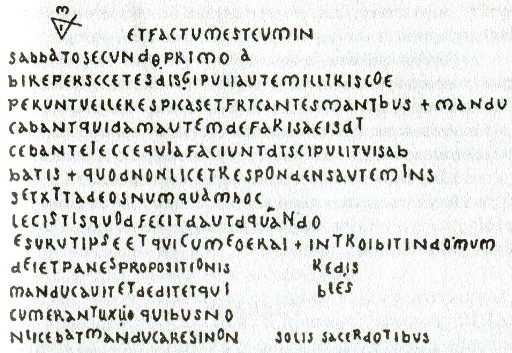 ETFACTUMESTEUMIN
SABBATOSECUNDEPRIMO A
BIREPERSCCETESDISGIPULIAUTEMILLTRISCOE
PERUNTUELLERESPICASETFRTCANTESMANTBUS + MANDU
CABANTQUIDAMAUTEMDEFARISAEISDT
CEBANTEIECCEQUIAFACIUNTDTSCIPULITUISAB
BATIS + QUODNONLICETRESPONDENSAUTEMINS
SETXTTADEOSNUMQUAMHOC
LECISTISQUODFECITDAUTDQUANDO
ESURUTIPSEETQUICUMEOERAI + INTROIBITINDOMUM
DEIETPANESPROPOSITIONIS REDIS
MANDUCAUITETDEDITETQUI BLES
CUMERANTUXUO QUIBUSNO
NLICEBATMANDUCARESINON SOLIS SACERDOTIBUS